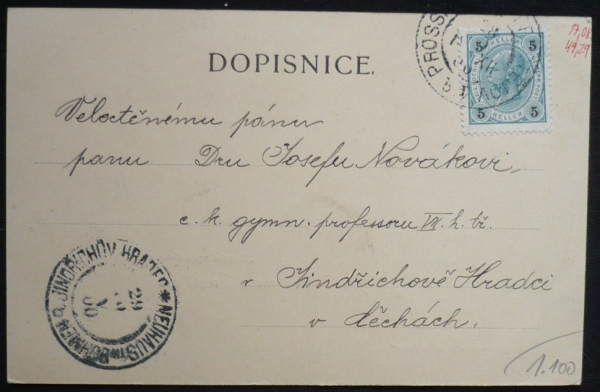 DOPISNICE.
5 HELLER 5
5 HELLER 5
17,08
49,29
Velectěnému pánu
panu Dru Josefu Novákovi,
c. k. gymn. professoru VII. h. tř.
v Jindřichově Hradci
v Čechách.
JINDŘICHŮV HRADEC * NEUHAUS in BÖHMEN
29
V
00
1.100